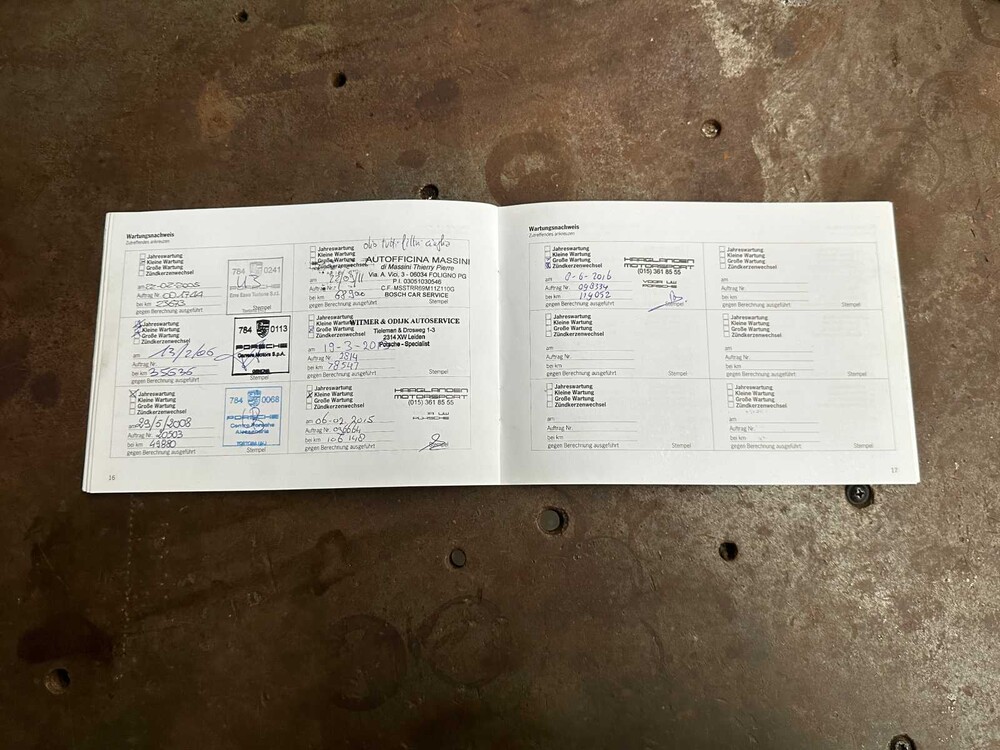 Wartungsnachweis
Zutreffendes ankreuzen
Jahreswartung
Kleine Wartung
Große Wartung
Zündkerzenwechsel
am
Auftrag Nr.
bei km
gegen Berechnung ausgeführt
784 0241
Stempel
Jahreswartung
Kleine Wartung
Große Wartung
Zündkerzenwechsel
am 13/2/06
Auftrag Nr.
bei km 35636
gegen Berechnung ausgeführt
784 0113
PORSCHE
Carrera Motors S.p.A.
Stempel
Jahreswartung
Kleine Wartung
Große Wartung
Zündkerzenwechsel
am 29/5/2008
Auftrag Nr. 20503
bei km 49880
gegen Berechnung ausgeführt
784 0068
PORSCHE
Centro Porsche
Alessandria
Stempel
olio tutti filtri
Jahreswartung
Kleine Wartung
Große Wartung
Zündkerzenwechsel
am
Auftrag Nr.
bei km 68900
gegen Berechnung ausgeführt
AUTOFFICINA MASSINI
di Massini Thierry Pierre
Via. A. Vici, 3 - 06034 FOLIGNO PG
P.I. 03051030546
C.F. MSSTRR69M11Z110G
BOSCH CAR SERVICE
Stempel
Jahreswartung
Kleine Wartung
Große Wartung
Zündkerzenwechsel
am 19-3-2013
Auftrag Nr. 2814
bei km 78547
gegen Berechnung ausgeführt
WITMER & ODIJK AUTOSERVICE
Tieleman & Drosweg 1-3
2314 XW Leiden
Porsche - Specialist
Stempel
Jahreswartung
Kleine Wartung
Große Wartung
Zündkerzenwechsel
am 06-02-2015
Auftrag Nr.
bei km 106140
gegen Berechnung ausgeführt
HAAGLANDEN
MOTORSPORT
(015) 361 85 55
16
Wartungsnachweis
Zutreffendes ankreuzen
Jahreswartung
Kleine Wartung
Große Wartung
Zündkerzenwechsel
am 8-6-2016
Auftrag Nr. 098334
bei km 114052
gegen Berechnung ausgeführt
HAAGLANDEN
MOTORSPORT
(015) 361 85 55
VOOR UW
PORSCHE
Stempel
Jahreswartung
Kleine Wartung
Große Wartung
Zündkerzenwechsel
am
Auftrag Nr.
bei km
gegen Berechnung ausgeführt
Stempel
Jahreswartung
Kleine Wartung
Große Wartung
Zündkerzenwechsel
am
Auftrag Nr.
bei km
gegen Berechnung ausgeführt
Stempel
Jahreswartung
Kleine Wartung
Große Wartung
Zündkerzenwechsel
am
Auftrag Nr.
bei km
gegen Berechnung ausgeführt
Stempel
Jahreswartung
Kleine Wartung
Große Wartung
Zündkerzenwechsel
am
Auftrag Nr.
bei km
gegen Berechnung ausgeführt
Stempel
Jahreswartung
Kleine Wartung
Große Wartung
Zündkerzenwechsel
am
Auftrag Nr.
bei km
gegen Berechnung ausgeführt
Stempel
17